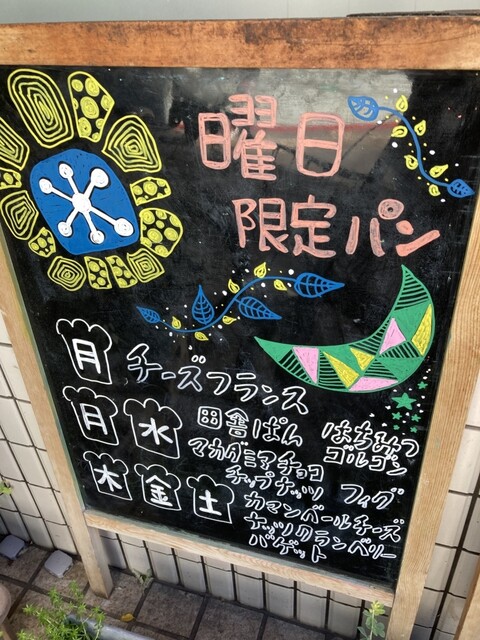 曜日
限定パン
月 チーズフランス
月 水 田舎ぱん はちみつ
マカダミアチョコ ゴルゴン
木 金 土 チップナッツ フィグ
カマンベールチーズ
ナッツクランベリー
バゲット